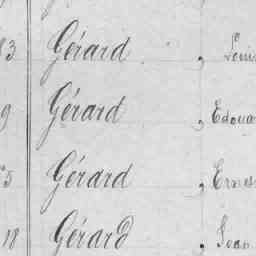 3 Gérard , Loui
9 Gérard , Edoua
5 Gérard , Ernes
18 Gérard , Jean